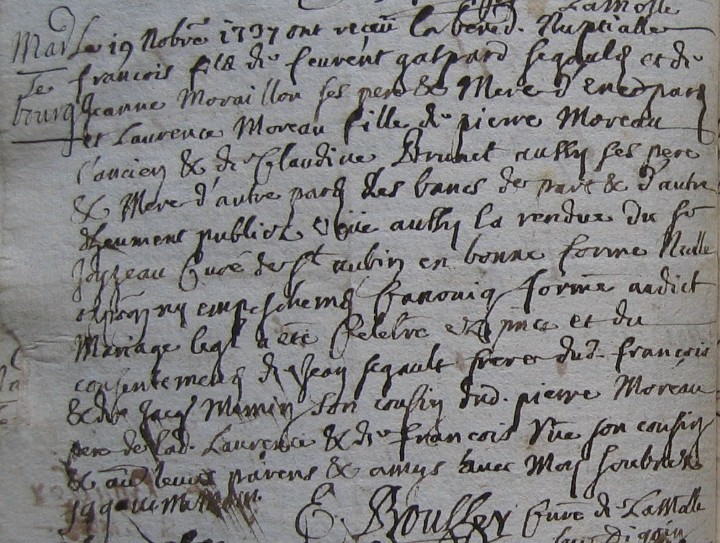 LaMolle
Mar
Le 19 Nobre 1737 ont receu la bened. Nuptialle
francois fils de feu gaspard segault et de
bourg Jeanne Moraillon ses pere & Mere d'une part
et Laurence Moreau fille de pierre Moreau
l'ancien & de Claudine Brunet aussy ses pere
& Mere d'autre part les bans de part & d'autre
deument publiez veüe aussy la rendue du Sr
Joyzeau Curé de St aubin en bonne forme Nulle
opposition ny empeschement canoniq formé audict
Mariage leql a été Celebré en pnce et du
consentement de Jean segault frere dud. francois
& de Jacq Memin son cousin dud. pierre Moreau
pere de lad. Laurence & de francois son cousin
& autres leurs parens & amys avec Moy soubz
E. Boussey Curé de LaMolle